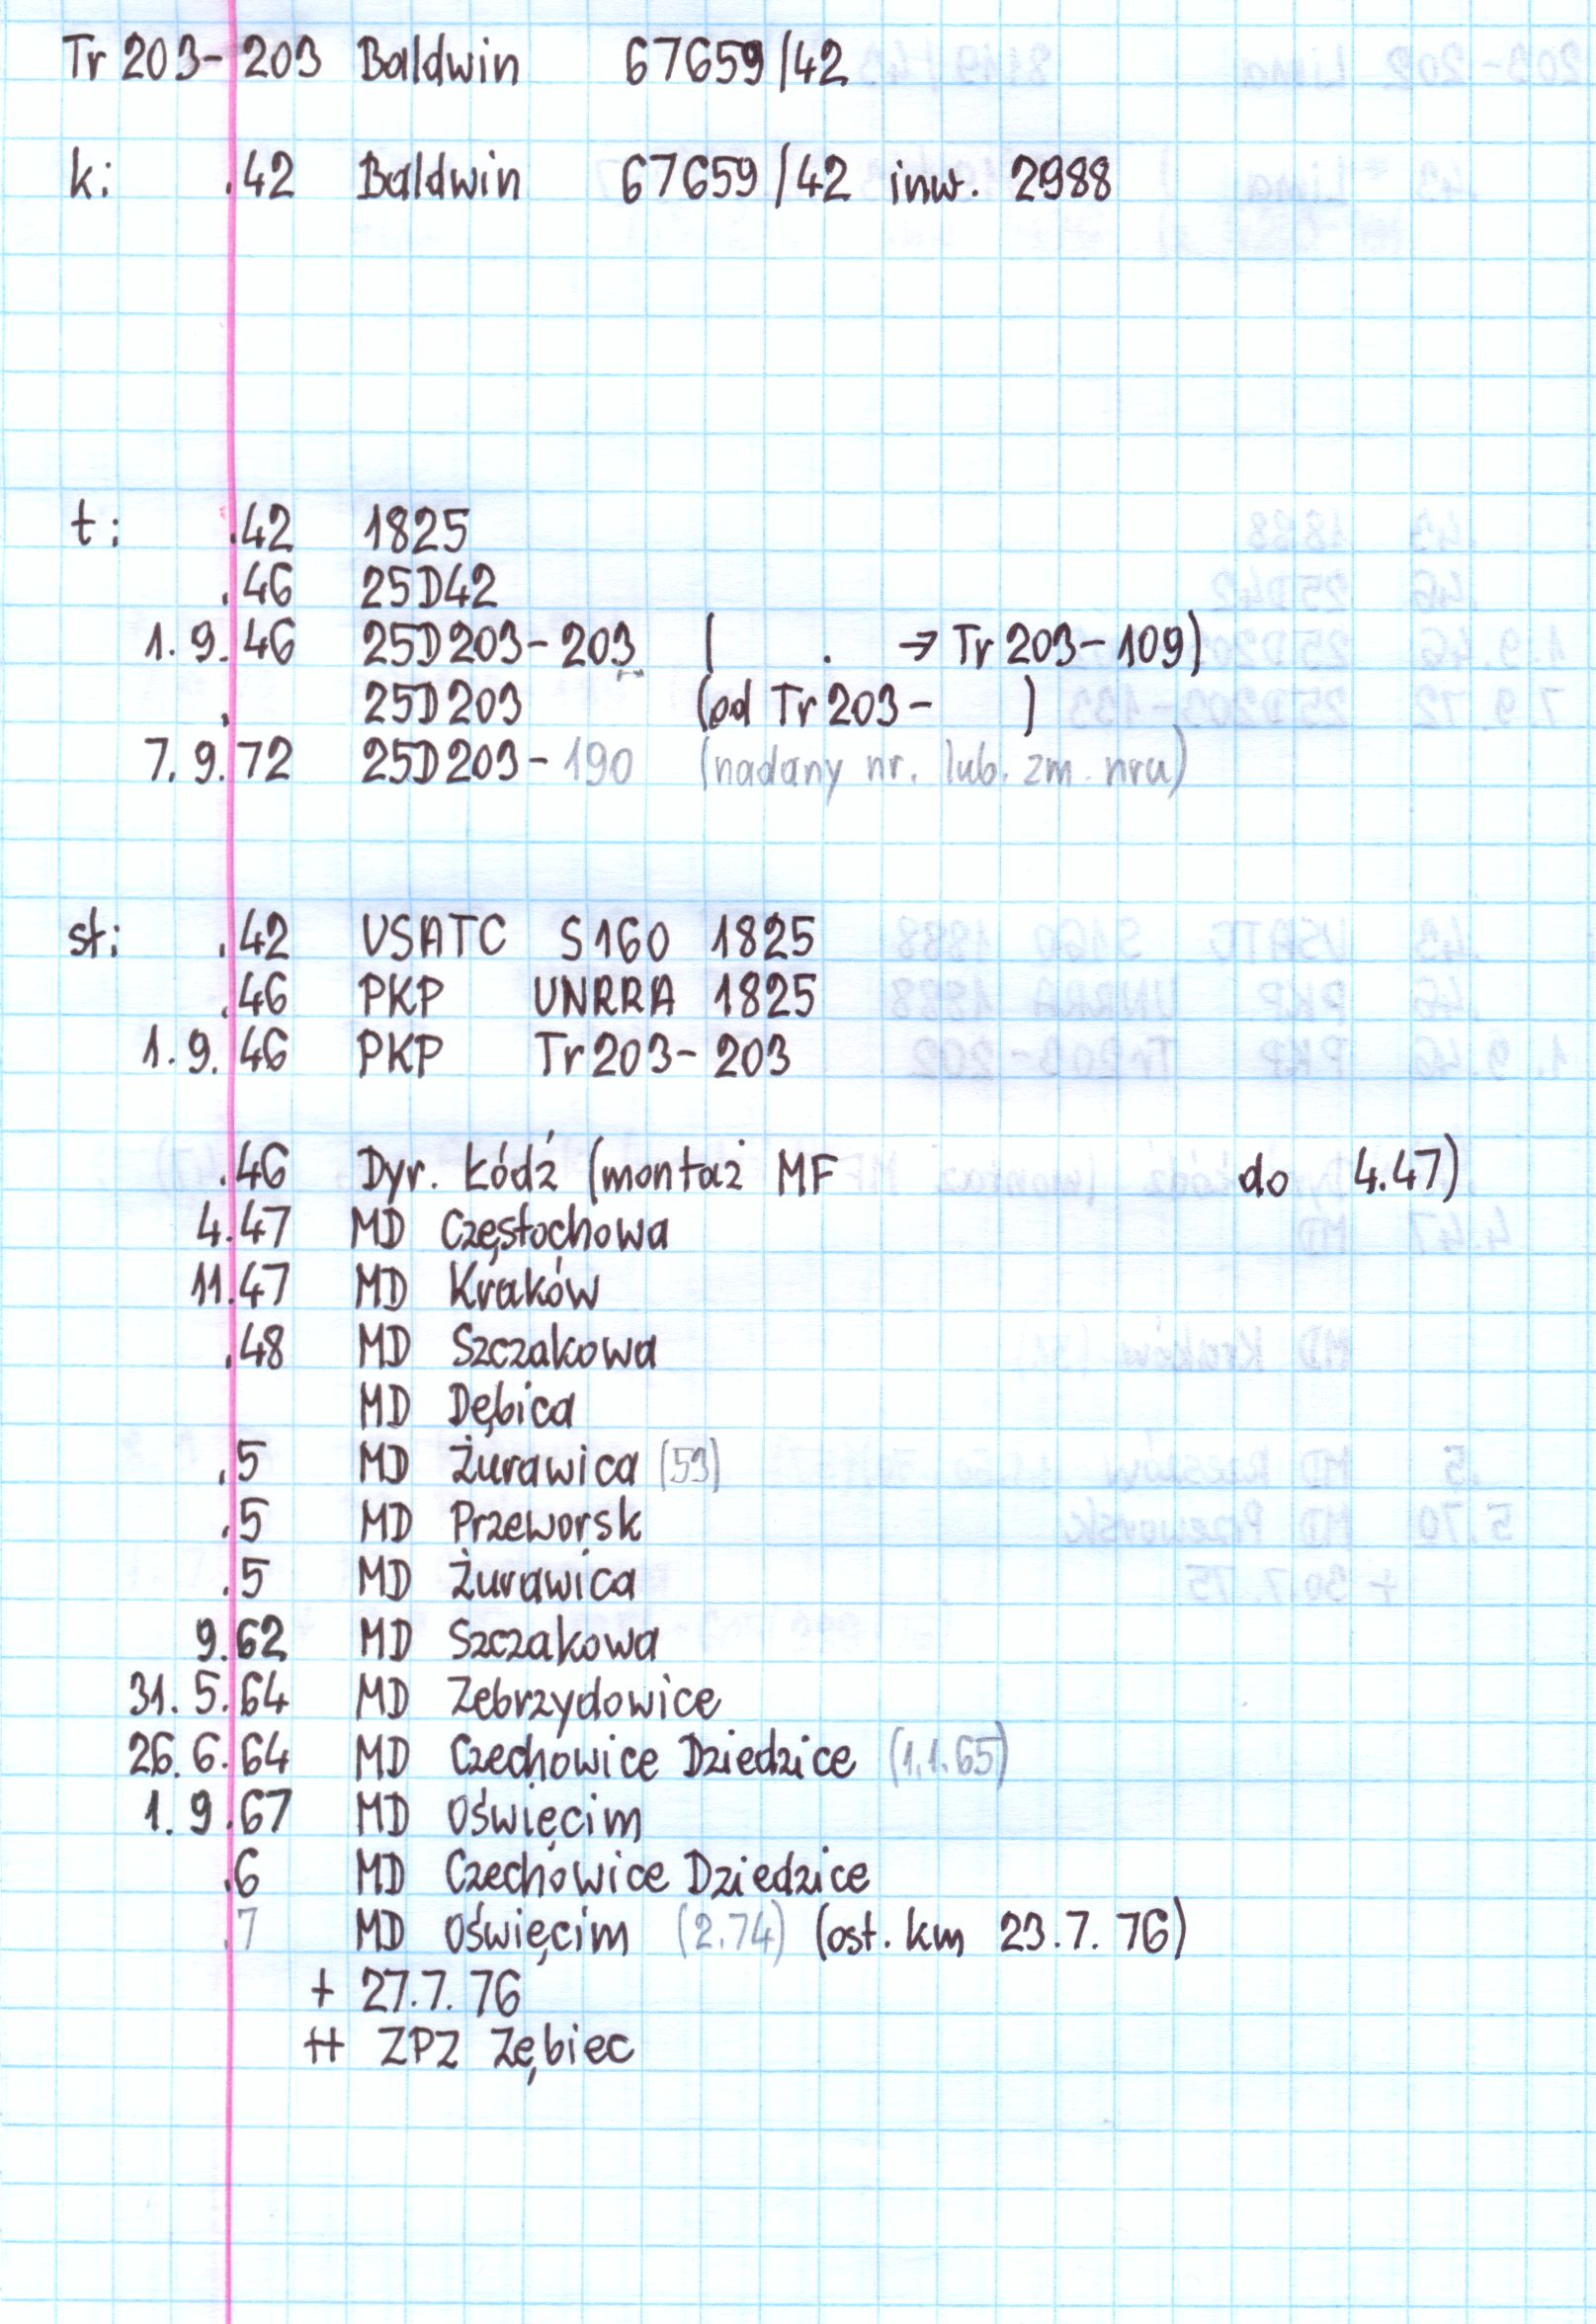 Tr 203-203 Baldwin 67659/42
k: .42 Baldwin 67659/42 inw. 2988
t: .42 1825
.46 25D42
1.9.46 25D203-203 ( . → Tr 203-109)
. 25D203 (od Tr 203- )
7.9.72 25D203-190 (nadany nr. lub. zm. nru)
st: .42 USATC S160 1825
.46 PKP UNRRA 1825
1.9.46 PKP Tr203-203
.46 Dyr. Łódź (montaż MF do 4.47)
4.47 MD Częstochowa
11.47 MD Kraków
.48 MD Szczakowa
MD Dębica
.5 MD Żurawica (53)
.5 MD Przeworsk
.5 MD Żurawica
9.62 MD Szczakowa
31.5.64 MD Zebrzydowice
26.6.64 MD Czechowice Dziedzice (1.1.65)
1.9.67 MD Oświęcim
.6 MD Czechowice Dziedzice
.7 MD Oświęcim (2.74) (ost. km 23.7.76)
+ 27.7.76
++ ZPZ Zębiec